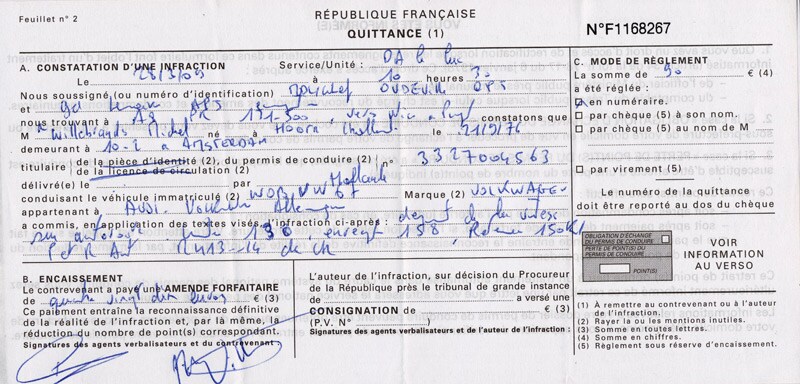 Feuillet n° 2
RÉPUBLIQUE FRANÇAISE
QUITTANCE (1)
N°F1168267
A. CONSTATATION D'UNE INFRACTION Service/Unité : DA le Luc
Le 28/3/09 à 10 heures 30
Nous soussigné (ou numéro d'identification)
et
nous trouvant à A8 PR constatons que
M né à Hoorn le 21/9/76
demeurant à 10-2 à AMSTERDAM
titulaire de la pièce d'identité (2), du permis de conduire (2) n° 3327004563
de la licence de circulation (2)
délivré(e) le par
conduisant le véhicule immatriculé (2) WOB VW 67 Marque (2)
appartenant à AUDI
a commis, en application des textes visés, l'infraction ci-après :
sur autoroute 130 158
R413-14 du CR
B. ENCAISSEMENT
Le contrevenant a payé une AMENDE FORFAITAIRE
de quatre vingt dix euros € (3)
Ce paiement entraîne la reconnaissance définitive
de la réalité de l'infraction et, par là même, la
réduction du nombre de point(s) correspondant.
Signatures des agents verbalisateurs et du contrevenant
L'auteur de l'infraction, sur décision du Procureur
de la République près le tribunal de grande instance
de a versé une
CONSIGNATION de € (3)
(P.V. N° )
Signatures des agents verbalisateurs et de l'auteur de l'infraction :
C. MODE DE RÈGLEMENT
La somme de 90 € (4)
a été réglée :
en numéraire.
par chèque (5) à son nom.
par chèque (5) au nom de M
par virement (5)
Le numéro de la quittance
doit être reporté au dos du chèque
OBLIGATION D'ÉCHANGE
DU PERMIS DE CONDUIRE
PERTE DE POINT(S) DU
PERMIS DE CONDUIRE
POINT(S)
VOIR
INFORMATION
AU VERSO
(1) À remettre au contrevenant ou à l'auteur
de l'infraction.
(2) Rayer la ou les mentions inutiles.
(3) Somme en toutes lettres.
(4) Somme en chiffres.
(5) Règlement sous réserve d'encaissement.